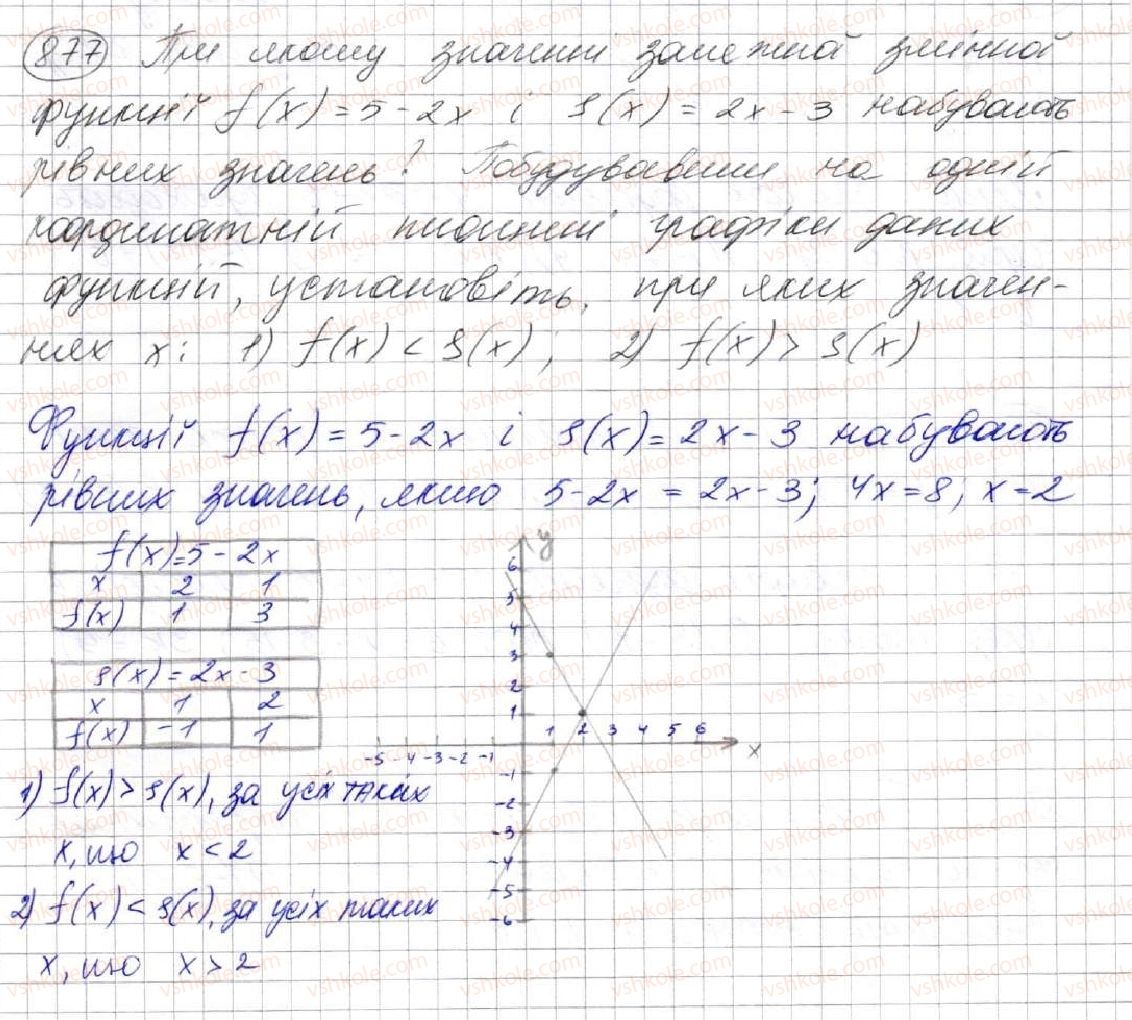 877 При якому значенні залежної змінної
функції f(x) = 5 - 2x і g(x) = 2x - 3 набувають
рівних значень? Побудувавши на одній
координатній площині графіки даних
функцій, установіть, при яких значен-
нях x: 1) f(x) < g(x); 2) f(x) > g(x)
Функції f(x) = 5 - 2x і g(x) = 2x - 3 набувають
рівних значень, якщо 5 - 2x = 2x - 3; 4x = 8; x = 2
f(x) = 5 - 2x
x 2 1
f(x) 1 3
g(x) = 2x - 3
x 1 2
f(x) -1 1
y
6
5
4
3
2
1
-5 -4 -3 -2 -1
1 2 3 4 5 6
x
-1
-2
-3
-4
-5
-6
1) f(x) > g(x), за усіх таких
x, що x < 2
2) f(x) < g(x), за усіх таких
x, що x > 2
vshkole.com